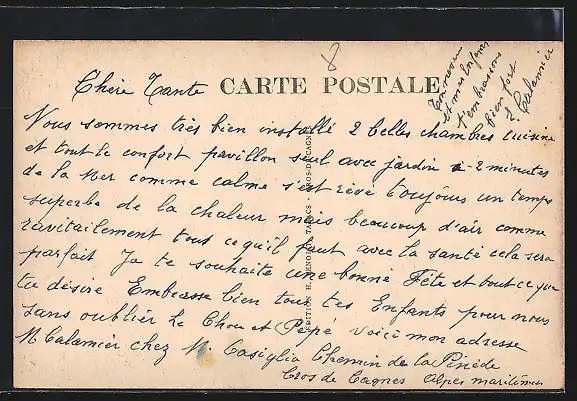 CARTE POSTALE
Chère Tante
Nous sommes très bien installé 2 belles chambres cuisine
et tout le confort pavillon seul avec jardin à 2 minutes
de la Mer comme calme s'est rêvé toujours un temps
superbe de la chaleur mais beaucoup d'air comme
ravitailement tous ce qu'il faut avec la santé cela sera
parfait Je te souhaite une bonne Fête et tout ce que
tu désire Embrasse bien tous tes Enfants pour nous
sans oublier le Chou et Pépé voici mon adresse
M Calamier chez M. Casiglia Chemin de la Pinède
Cros de Cagnes Alpes maritimes
Ton neveu
et mes Enfants
t'embrassons
bien fort
Calamier